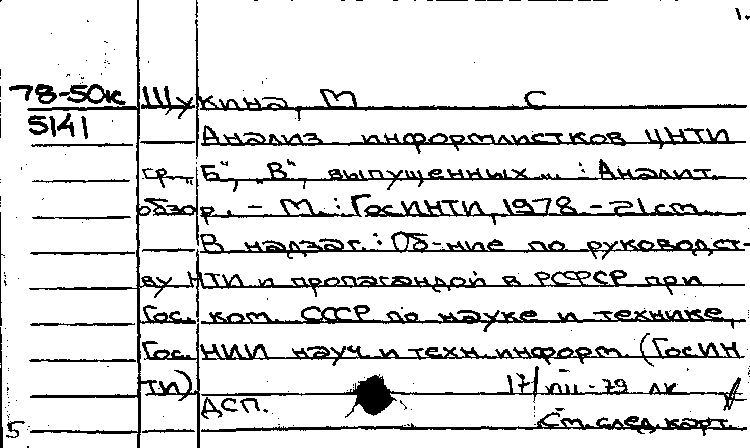 1.
78-50к Щукина, М С
5141 Анализ информлистков ЦНТИ
гр. „Б", „В", выпущенных... : Аналит.
обзор. - М. : ГосИНТИ, 1978. - 21 ст.
В надзаг. : Об-ние по руководст-
ву НТИ и пропагандой в РСФСР при
Гос. ком. СССР по науке и технике,
Гос. НИИ науч. и техн. информ. (ГосИН
ТИ).
17/VIII-79 лк
ДСП.
См. след. карт.
5